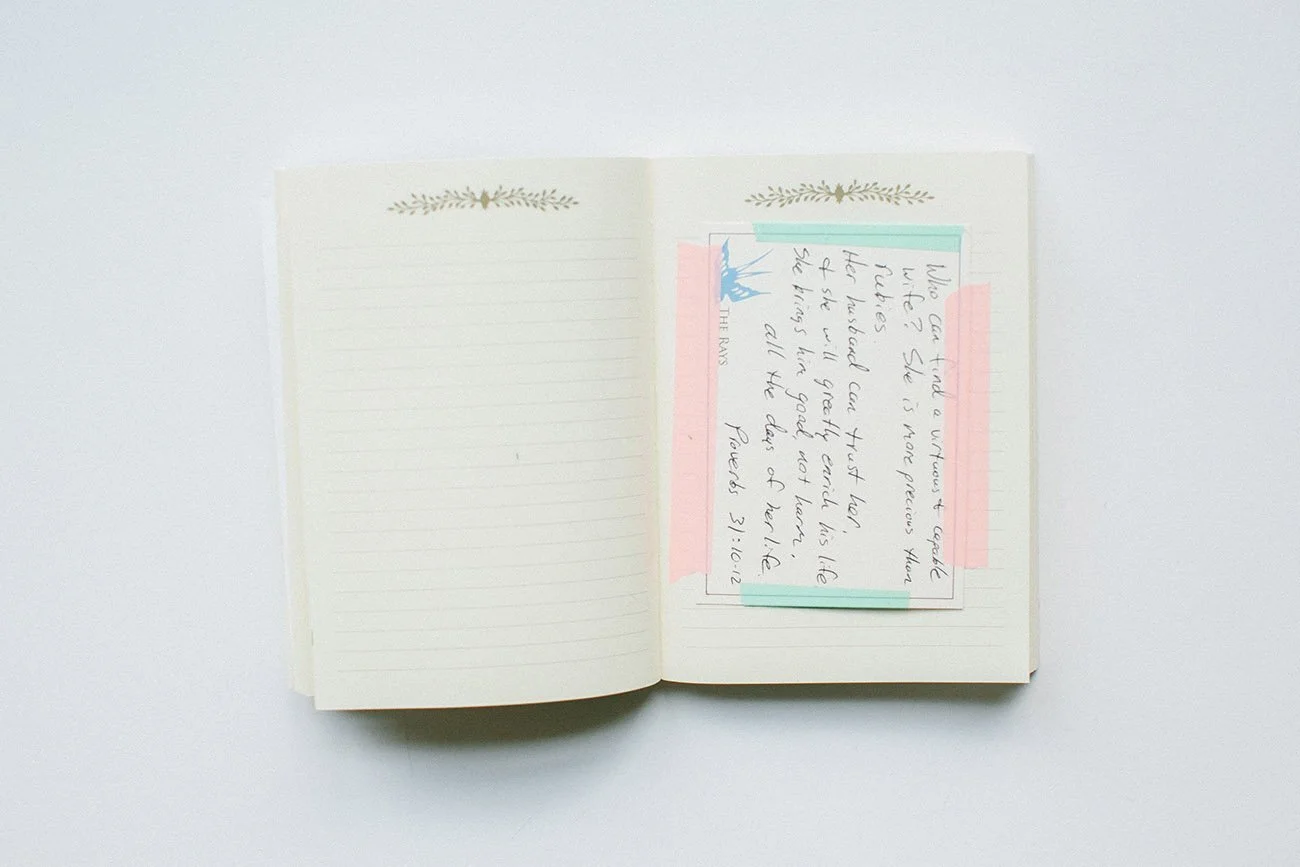 Who can find a virtuous & capable
wife? She is more precious than
rubies.
Her husband can trust her,
& she will greatly enrich his life
She brings him good, not harm,
all the days of her life.
Proverbs 31:10-12
THE RAYS